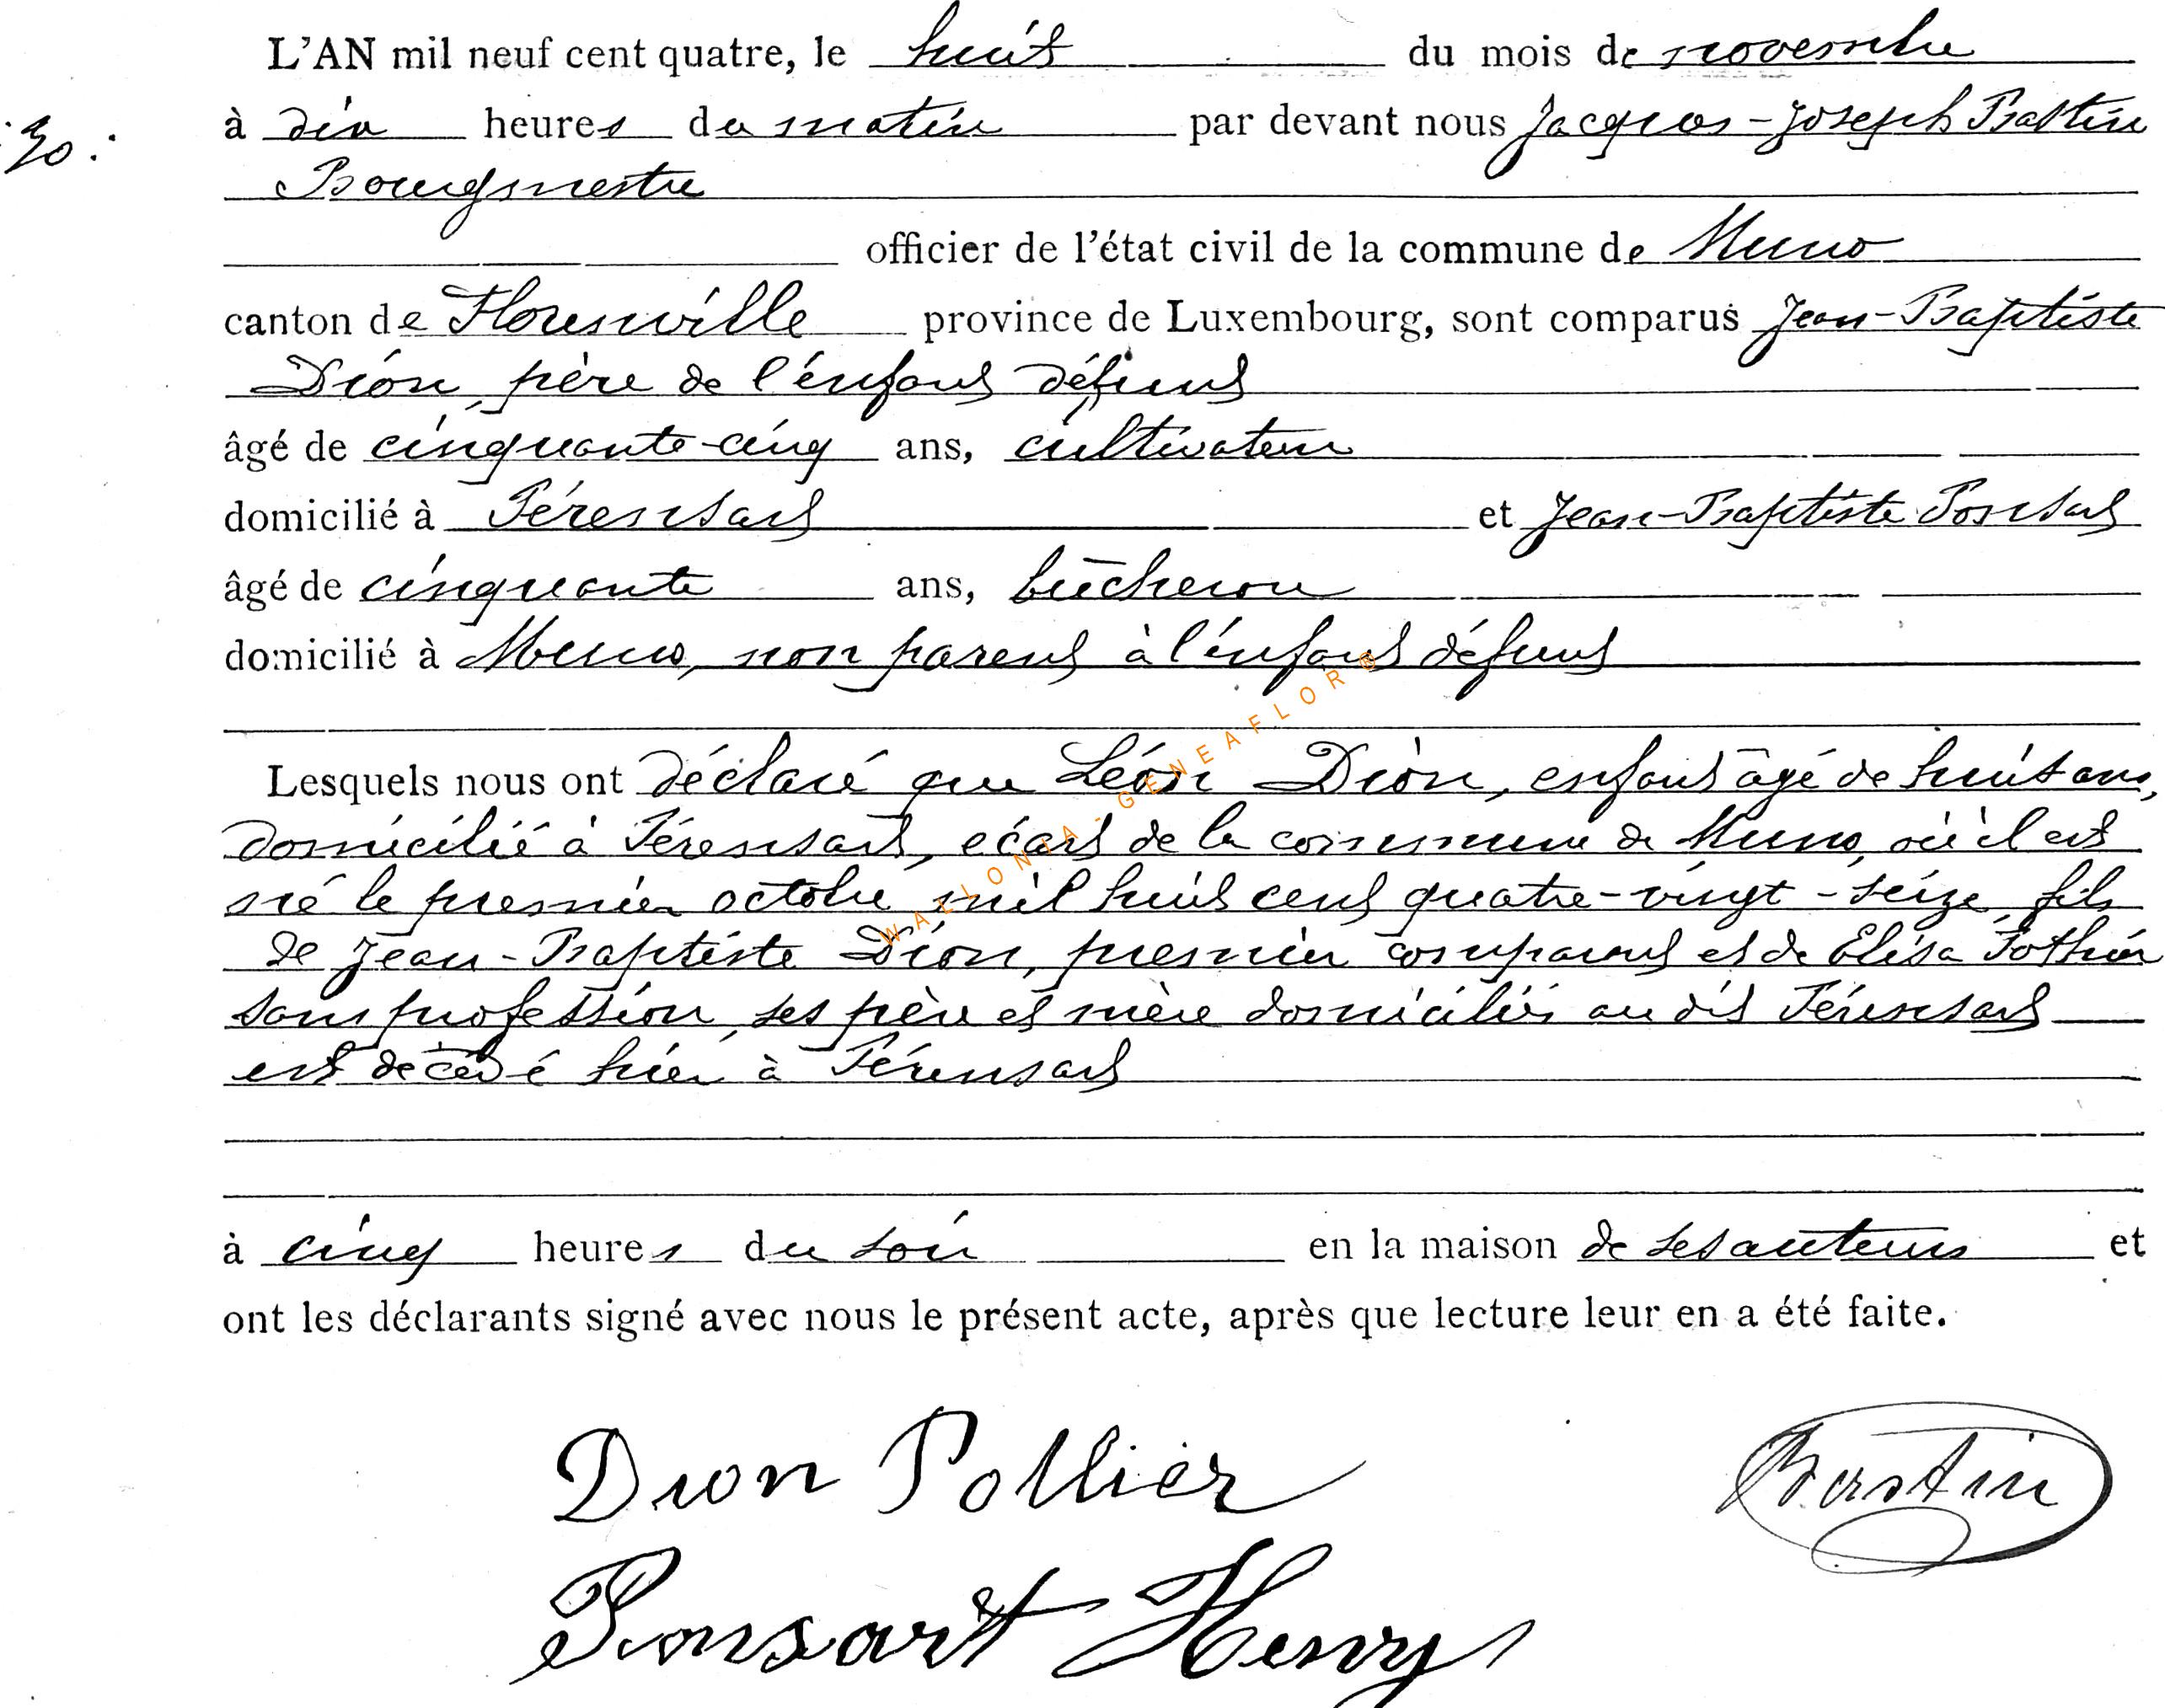 L'AN mil neuf cent quatre, le huit du mois de novembre
30. à dix heures du matin par devant nous Jacques-Joseph Bastin
Bourgmestre
officier de l'état civil de la commune de Muno
canton de Florenville province de Luxembourg, sont comparus Jean-Baptiste
Dion, père de l'enfant défunt
âgé de cinquante-cinq ans, cultivateur
domicilié à Férensart et Jean-Baptiste Ponsart
âgé de cinquante ans, bûcheron
domicilié à Muno, non parent à l'enfant défunt
Lesquels nous ont déclaré que Léon Dion, enfant âgé de huit ans,
domicilié à Térensart, écart de la commune de Muno, où il est
né le premier octobre mil huit cent quatre-vingt-seize, fils
de Jean-Baptiste Dion, premier comparant et de Elisa Pothier
sans profession, ses père et mère domiciliés au dit Térensart
est décédé hier à Térensart
à cinq heures du soir en la maison de ses auteurs et
ont les déclarants signé avec nous le présent acte, après que lecture leur en a été faite.
Dion Pottier
Bastin
Ponsart Henry
WALLONIA-GENEAFLOR®